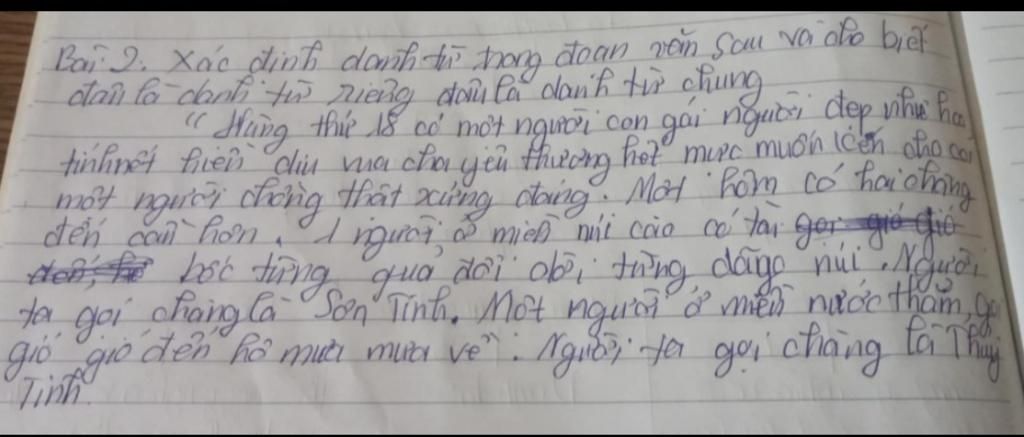 Bài 2. Xác định danh từ trong đoạn văn sau và cho biết
đâu là danh từ riêng đâu là danh từ chung
"Hùng thứ 18 có một người con gái người đẹp như hoa,
tính nết hiền dịu vua cha yêu thương hết mực muốn kén cho con
một người chồng thật xứng đáng. Một hôm có hai chàng
đến cầu hôn. 1 người ở miền núi cao có tài gọi gió gió
đến, bốc từng quả đồi dời từng dãy núi. Người
ta gọi chàng là Sơn Tinh. Một người ở miền nước thẳm, gọi
gió gió đến hô mưa mưa về. Người ta gọi chàng là Thủy
Tinh.